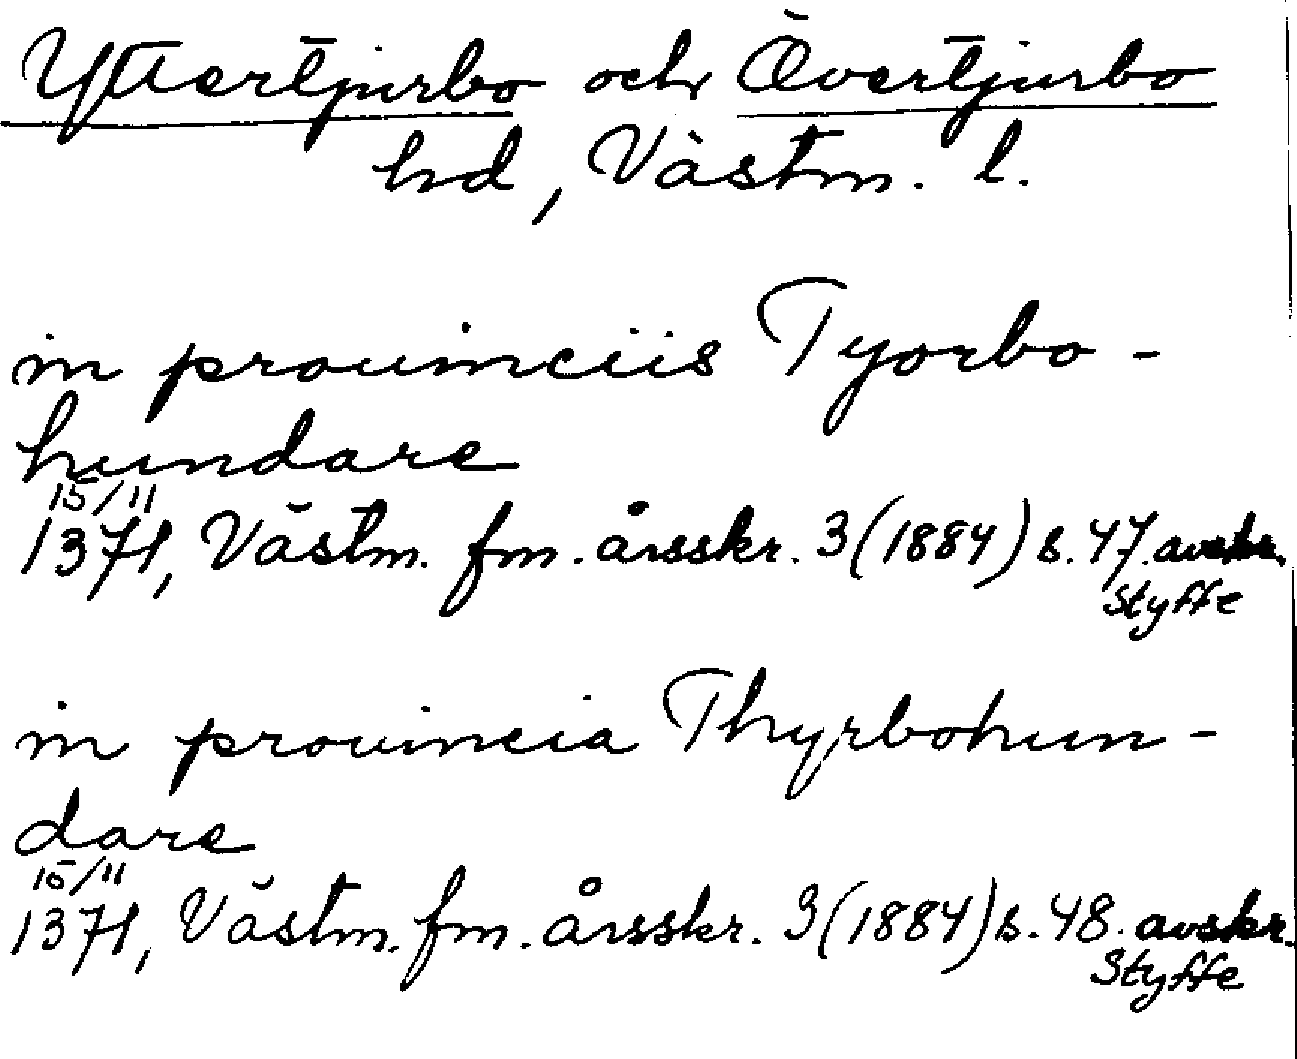 Yttertjurbo och Övertjurbo
hd, Västm. l.
in prouinciis Tyorbo-
hundare
15/11
1371, Västm. fm. årsskr. 3 (1884) s. 47. avskr.
Styffe
in prouincia Thyrbohun-
dare
15/11
1371, Västm. fm. årsskr. 3 (1884) s. 48. avskr.
Styffe